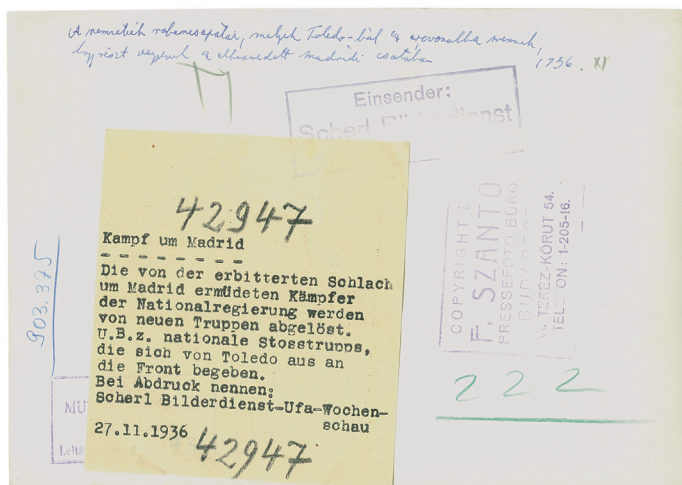 A nemzetiek rohamcsapatai, melyek Toledo-ból a arcvonalba mennek,
hogy részt vegyenek a madridi csatában
1936. XI
Einsender:
Scherl Bilderdienst
42947
Kampf um Madrid
- - - - - - - -
Die von der erbitterten Schlach
um Madrid ermüdeten Kämpfer
der Nationalregierung werden
von neuen Truppen abgelöst.
U.B.z. nationale Stosstrupps,
die sich von Toledo aus an
die Front begeben.
Bei Abdruck nennen:
Scherl Bilderdienst-Ufa-Wochen-
schau
27.11.1936
42947
903.375
COPYRIGHT
F. SZANTO
PRESSEFOTO BÜRO
BUDAPEST
VI. TERÉZ-KÖRUT 54.
TELEFON: 1-205-16.
222
MÚ